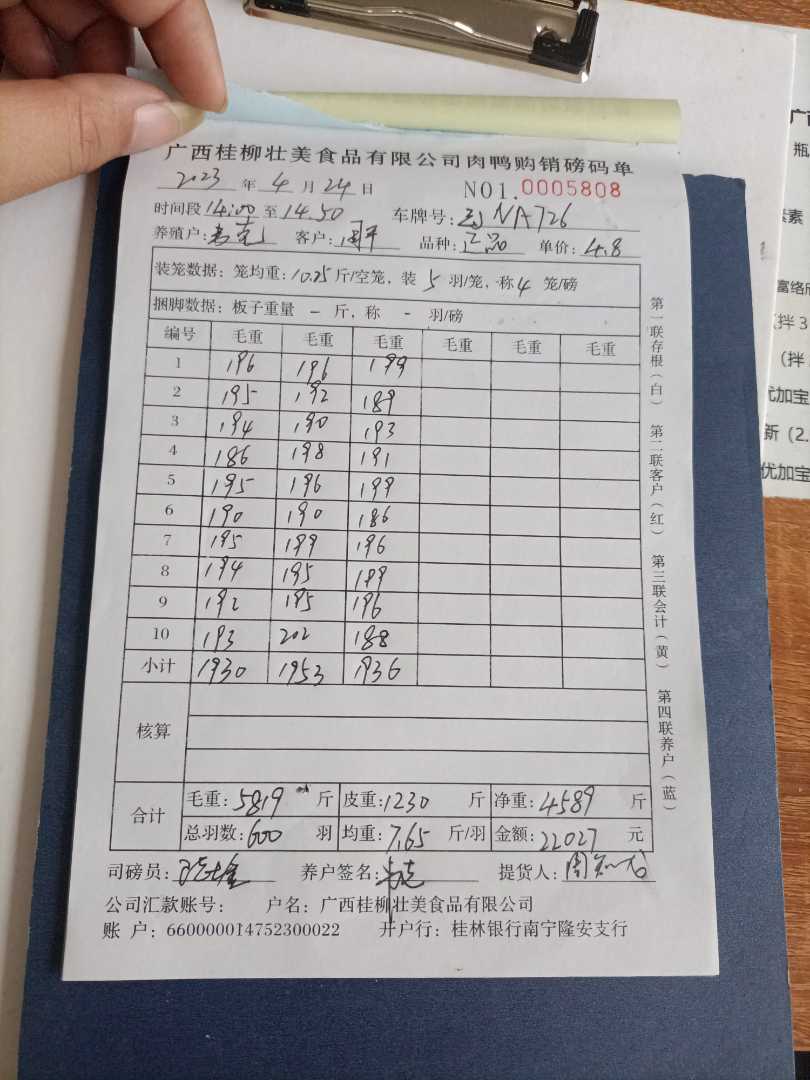 广西桂柳壮美食品有限公司肉鸭购销磅码单
2023 年 4 月 24 日 NO1.0005808
时间段 14:00 至 14.50 车牌号: NA726
养殖户: 客户: 周平 品种: 正品 单价: 4.8
装笼数据: 笼均重: 10.25 斤/空笼, 装 5 羽/笼, 称 4 笼/磅
捆脚数据: 板子重量 - 斤, 称 - 羽/磅
编号 毛重 毛重 毛重 毛重 毛重 毛重
1 196 196 199
2 195 192 189
3 194 190 193
4 186 198 191
5 195 196 199
6 190 190 186
7 195 199 196
8 194 195 199
9 192 195 196
10 193 202 188
小计 1930 1953 1936
核算
合计
毛重: 5819 斤 皮重: 1230 斤 净重: 4589 斤
总羽数: 600 羽 均重: 7.65 斤/羽 金额: 22027 元
司磅员: 养户签名: 提货人:
公司汇款账号: 户名: 广西桂柳壮美食品有限公司
账 户: 660000014752300022 开户行: 桂林银行南宁隆安支行
第一联存根(白) 第二联客户(红) 第三联会计(黄) 第四联养户(蓝)
瓶
素
富络欣
拌 3
(拌
优加宝
新 (2.
优加宝